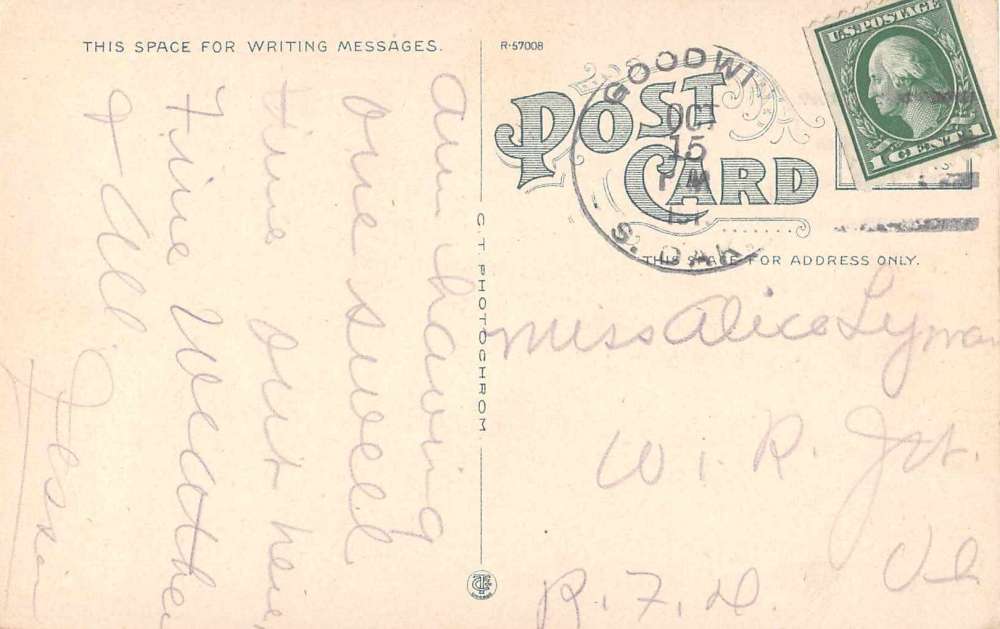 THIS SPACE FOR WRITING MESSAGES.
am having
one swell
time out here
Fine Weather
& All
R-57008
C. T. PHOTOCHROM
POST
CARD
GOODWI
OCT
15
PM
S. DAK
U.S. POSTAGE
1 CENT 1
THIS SPACE FOR ADDRESS ONLY.
Miss Alice Lyman
W. R. Jct.
Vt
R. F. D.